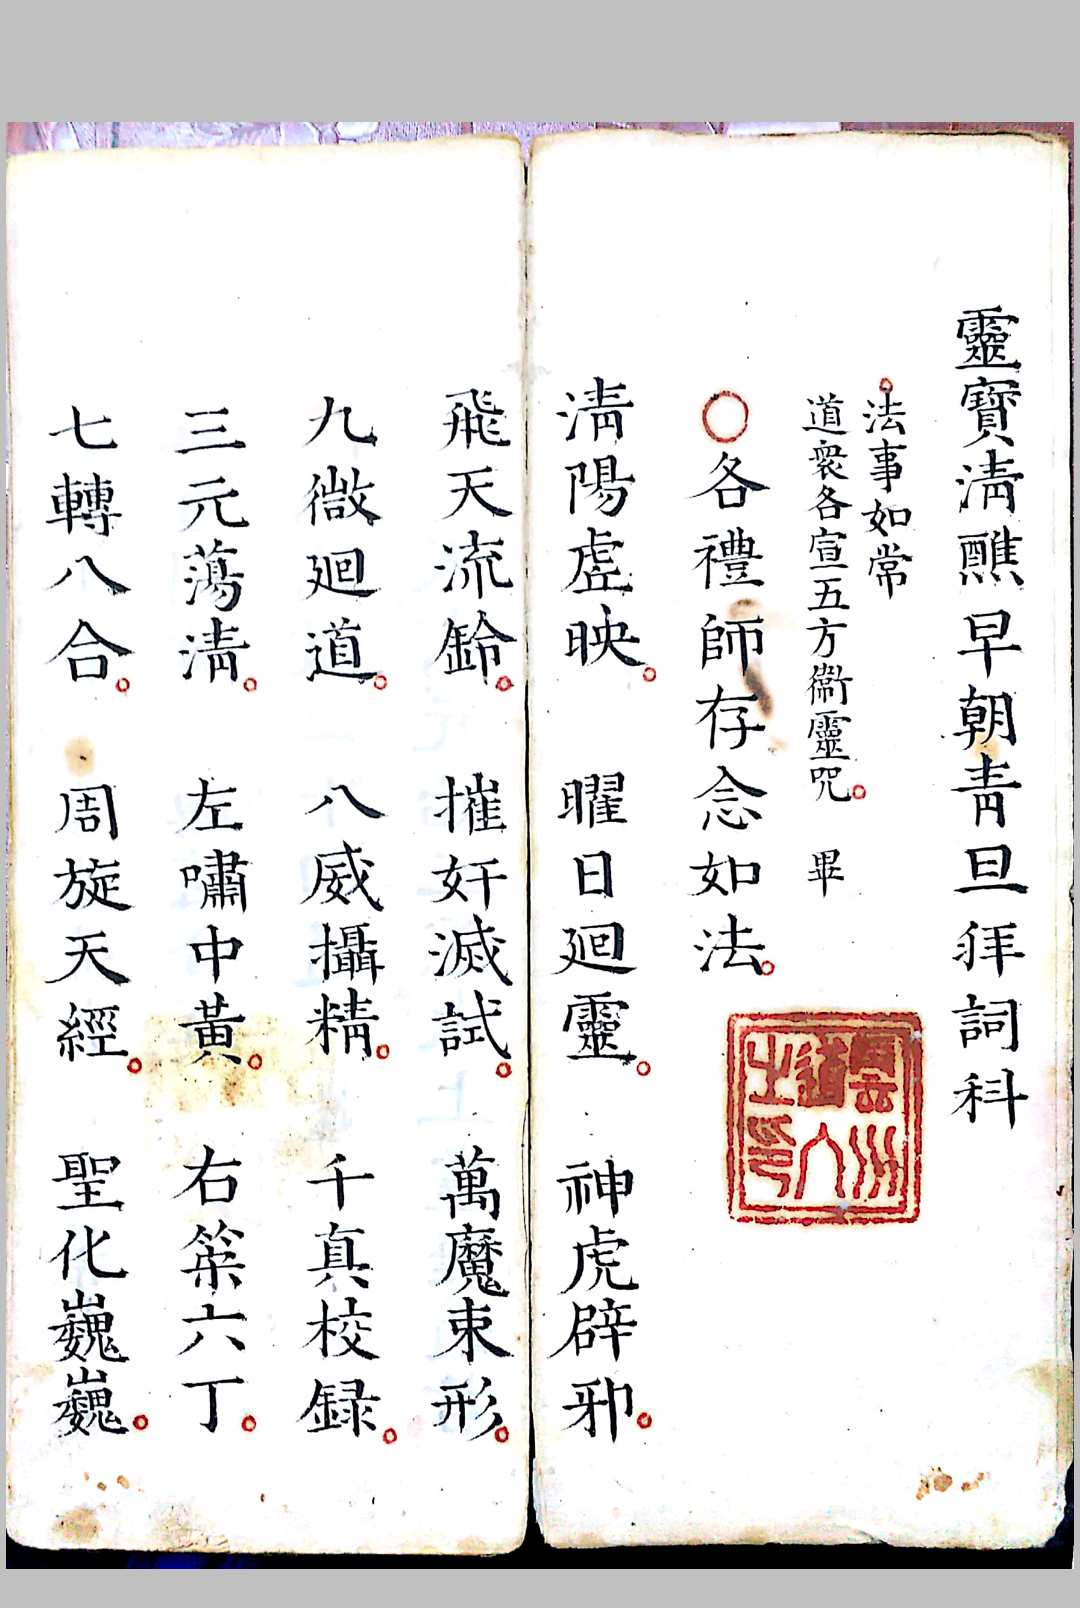 靈寶清醮早朝青旦拜詞科
法事如常
道衆各宣五方衞靈咒。 畢
○各禮師存念如法。
清陽虛映。 曜日廻靈。 神虎辟邪。
飛天流鈴。 摧奸滅試。 萬魔束形。
九微廻道。 八威攝精。 千真校録。
三元蕩清。 左嘯中黃。 右策六丁。
七轉八合。 周旋天經。 聖化巍巍。